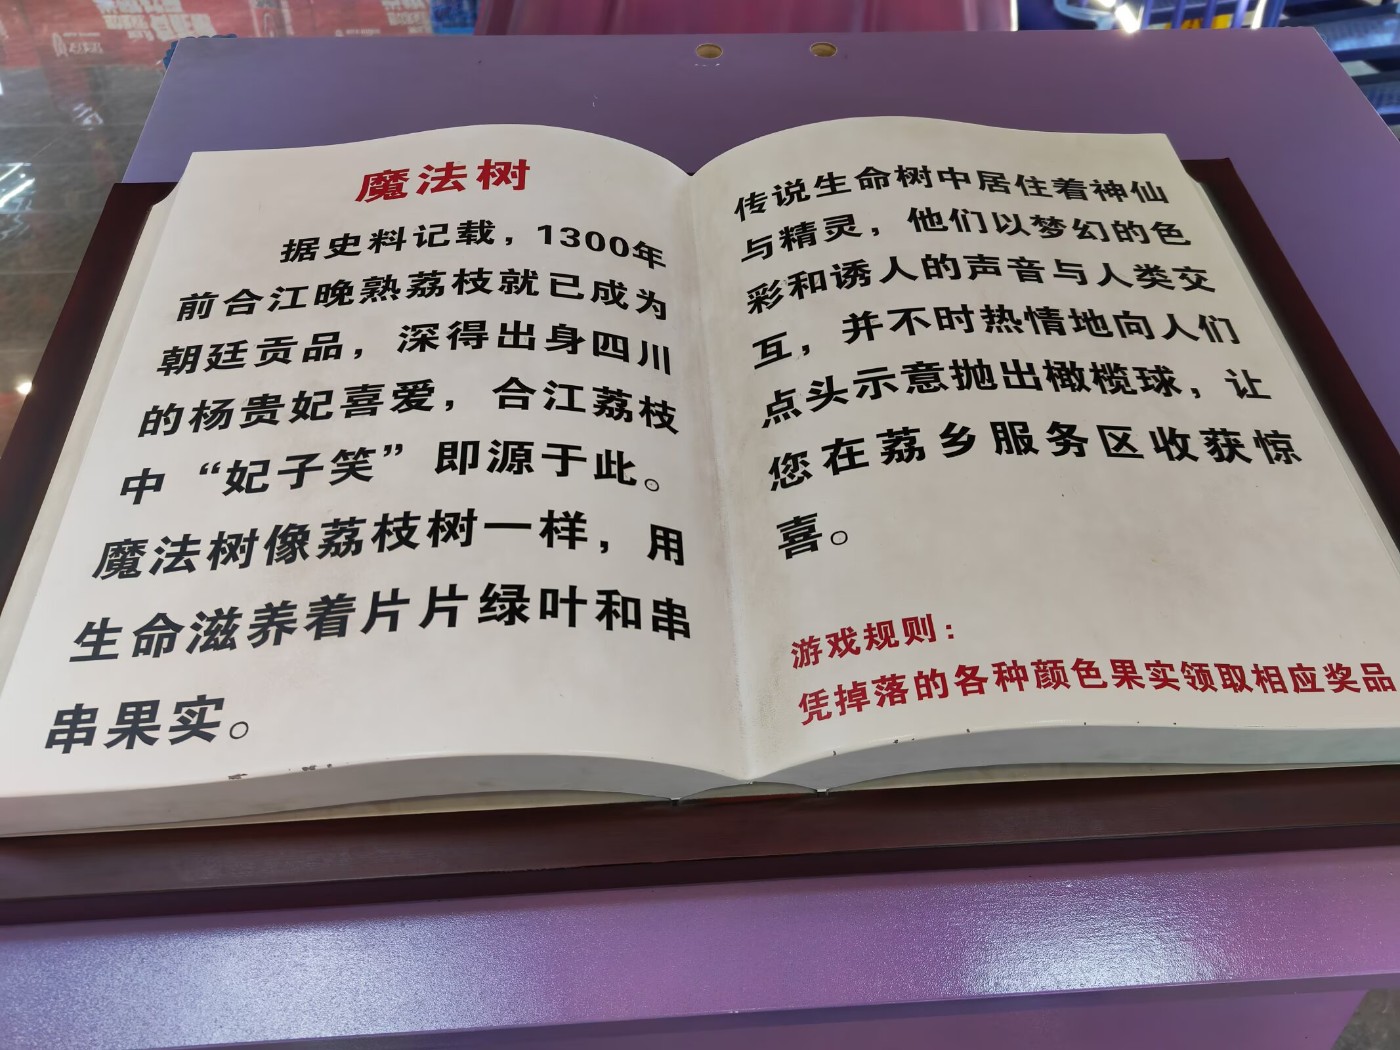 魔法树
据史料记载，1300年
前合江晚熟荔枝就已成为
朝廷贡品，深得出身四川
的杨贵妃喜爱，合江荔枝
中“妃子笑”即源于此。
魔法树像荔枝树一样，用
生命滋养着片片绿叶和串
串果实。
传说生命树中居住着神仙
与精灵，他们以梦幻的色
彩和诱人的声音与人类交
互，并不时热情地向人们
点头示意抛出橄榄球，让
您在荔乡服务区收获惊
喜。
游戏规则：
凭掉落的各种颜色果实领取相应奖品